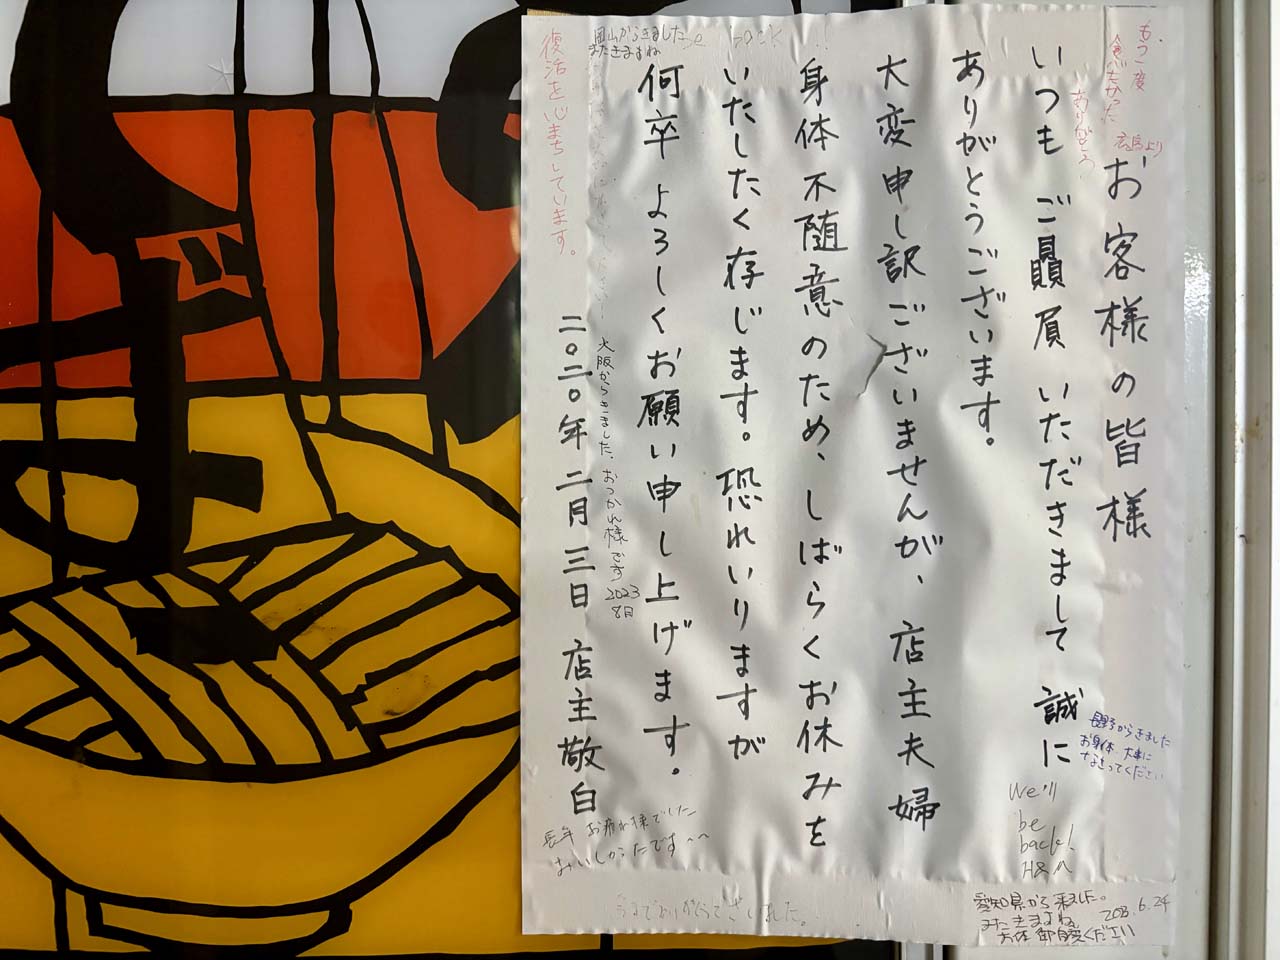 お客様の皆様
いつも ご贔屓 いただきまして 誠に
ありがとうございます。
大変申し訳ございませんが、店主夫婦
身体不随意のため、しばらくお休みを
いたしたく存じます。恐れいりますが
何卒 よろしくお願い申し上げます。
二〇二〇年 二月 三日 店主敬白
もう一度
食べたかった
ありがとう
広島より
岡山からきました
またきますね
back!!
復活を心まちしています。
大阪からきました。おつかれ様です 2023
8日
長野からきました
お身体、大事に
なさってください
We'll
be
back!
H&M
長年 お疲れ様でした
おいしかったです〜〜
今までありがとうございました。
愛知県から来ました。
またきますね
お体御自愛ください
2023.6.24